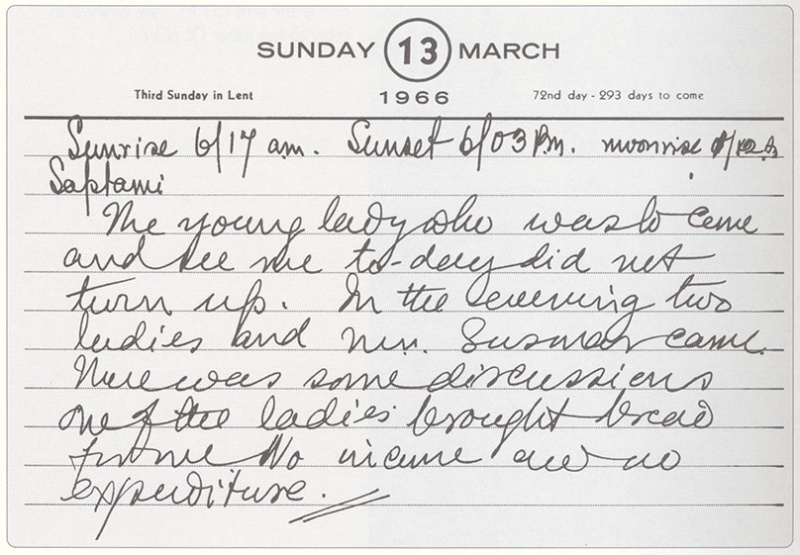 SUNDAY 13 MARCH
Third Sunday in Lent 1966 72nd day - 293 days to come
Sunrise 6/17 am. Sunset 6/03 Pm. moonrise
Saptami
The young lady who was to come
and see me to-day did not
turn up. In the evening two
ladies and Mr. came.
There was some discussions
one of the ladies brought bread
for me No income and no
expenditure.